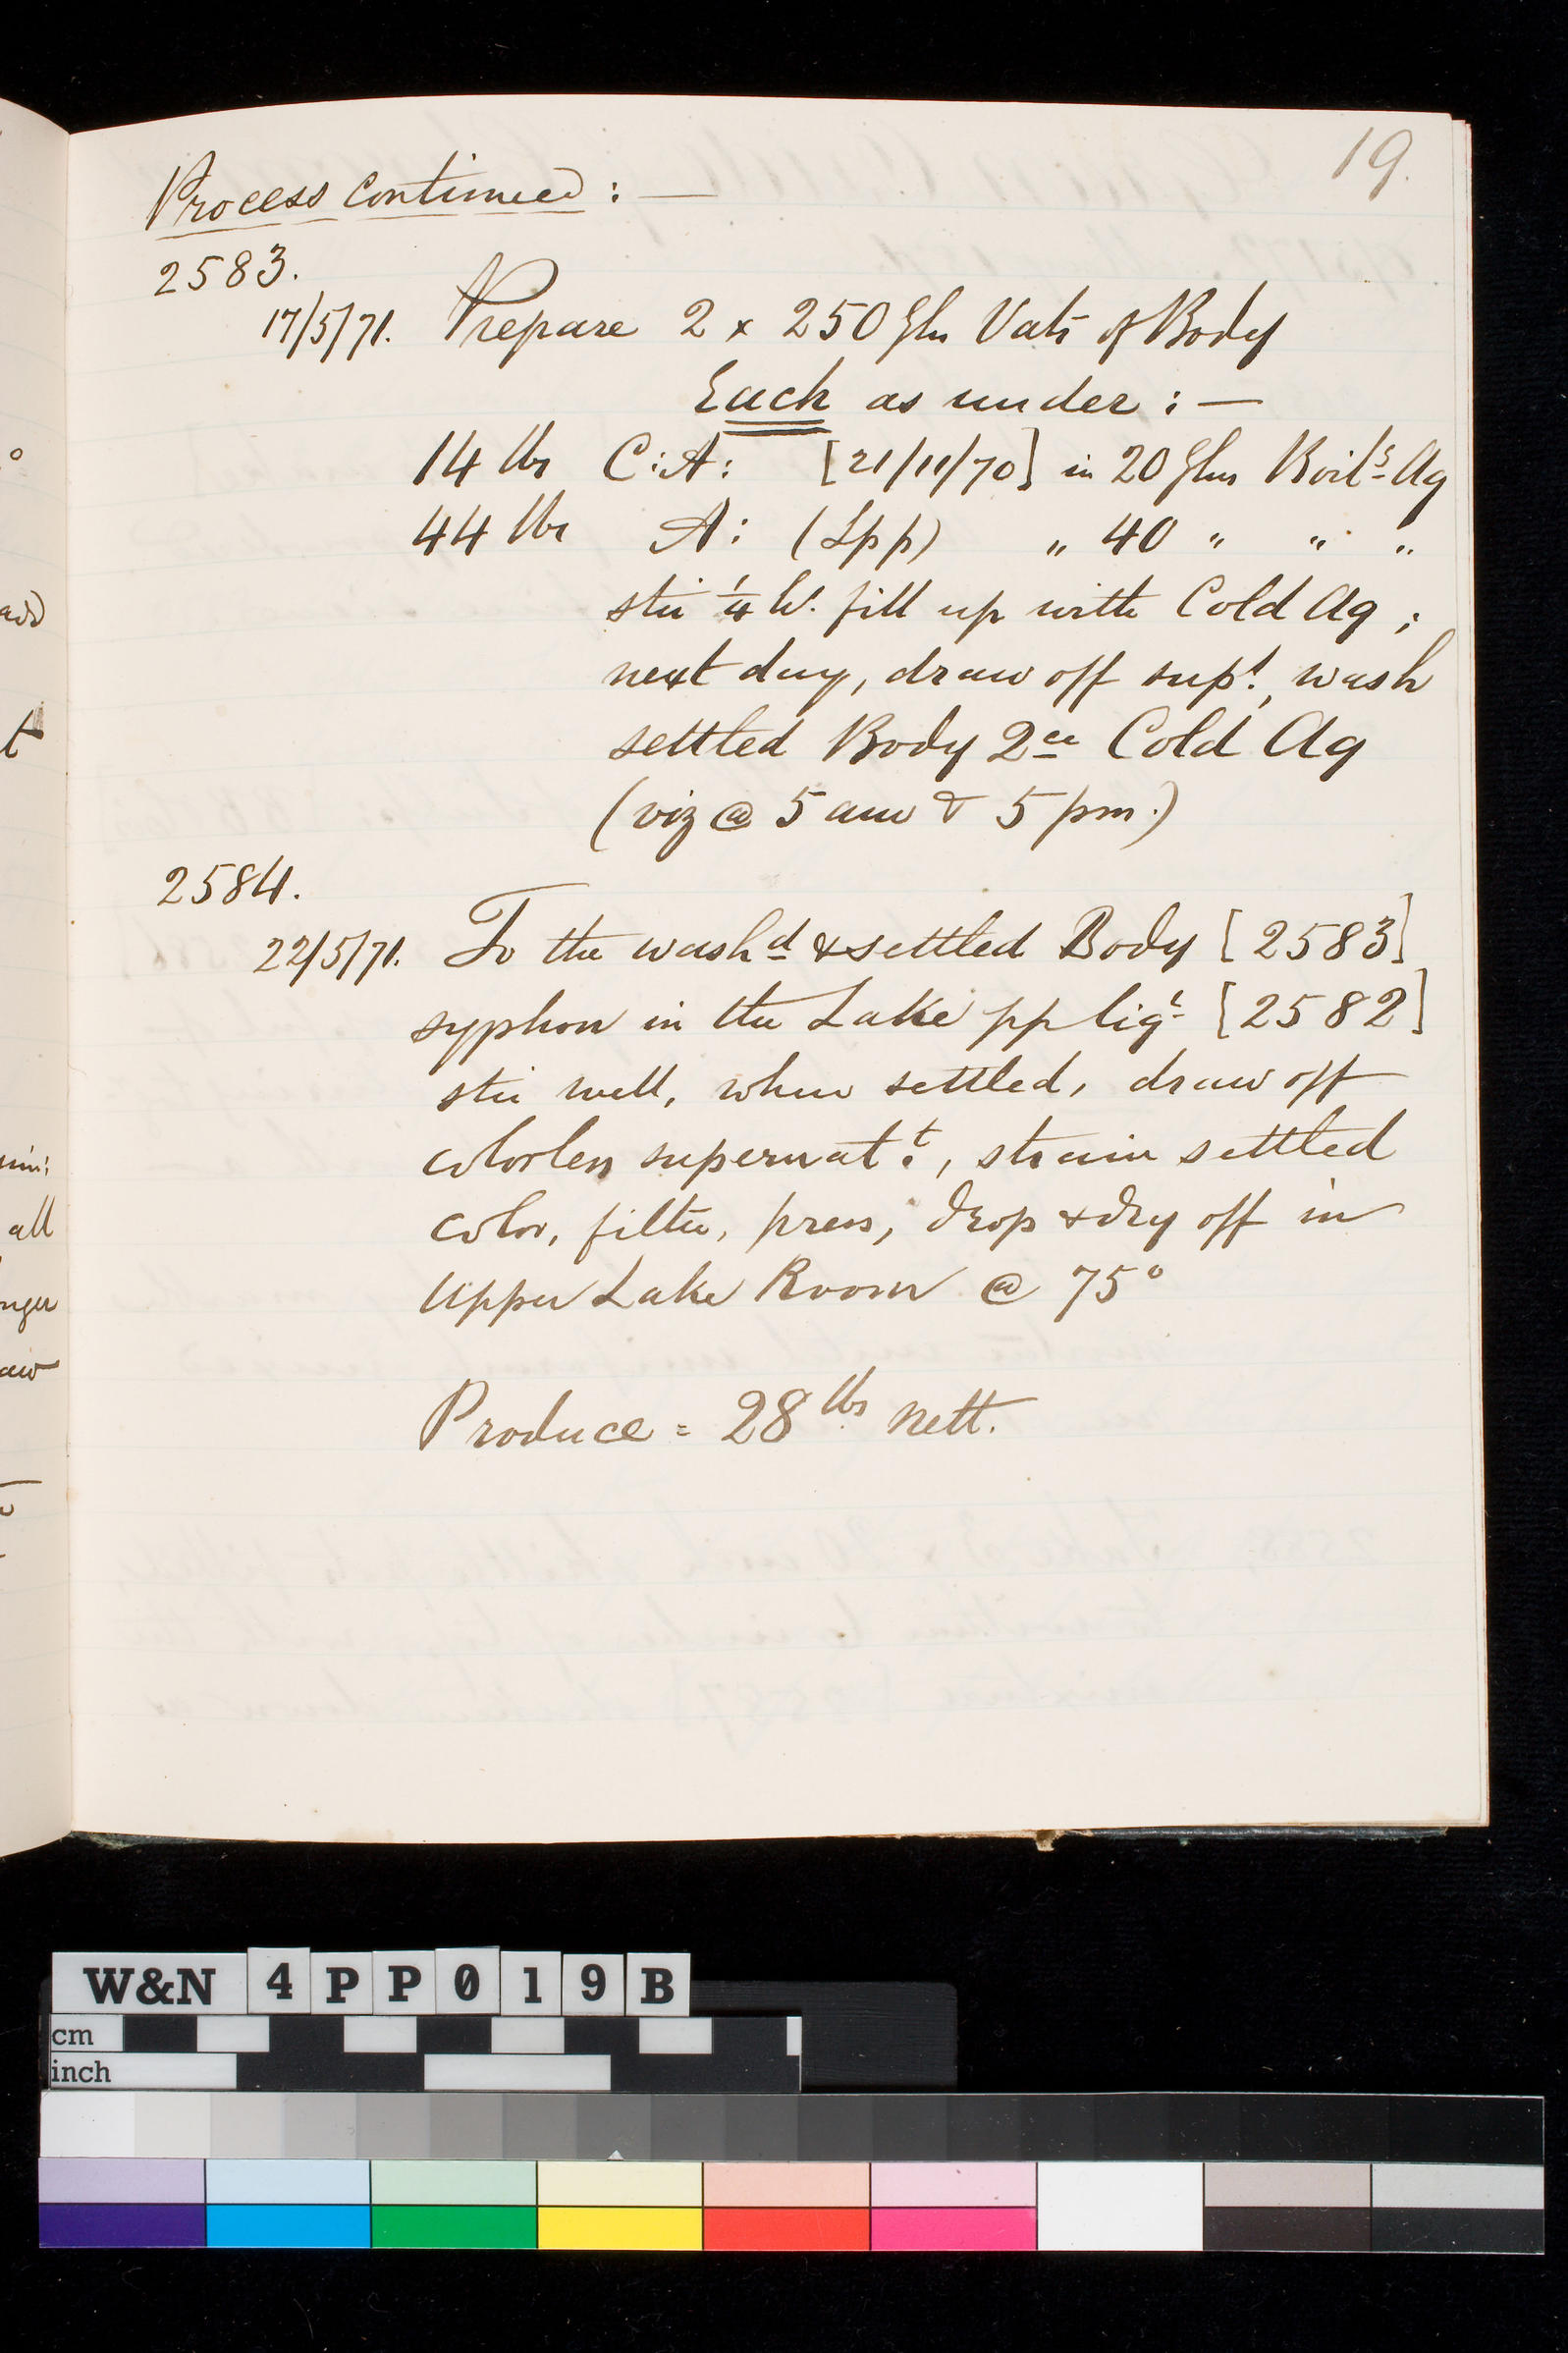 19.
Process continued : —
2583.
17/5/71. Prepare 2 x 250 Glns Vats of Body
Each as under : —
14 lbs C:A: [21/11/70] in 20 Glns Boilg Aq
44 lbs A: (Lpp) " 40 " " "
stir 1/4 hr. fill up with Cold Aq ;
next day, draw off supt., wash
settled Body 2ce Cold Aq
(viz @ 5 am & 5 pm.)
2584.
22/5/71. To the washd & settled Body [2583]
syphon in the Lake pp liqr [2582]
stir well, when settled, draw off
colorless supernatt., strain settled
color, filter, press, drop & dry off in
Upper Lake Room @ 75°
Produce = 28 lbs nett.
°
t
all
W&N 4PP019B
cm
inch